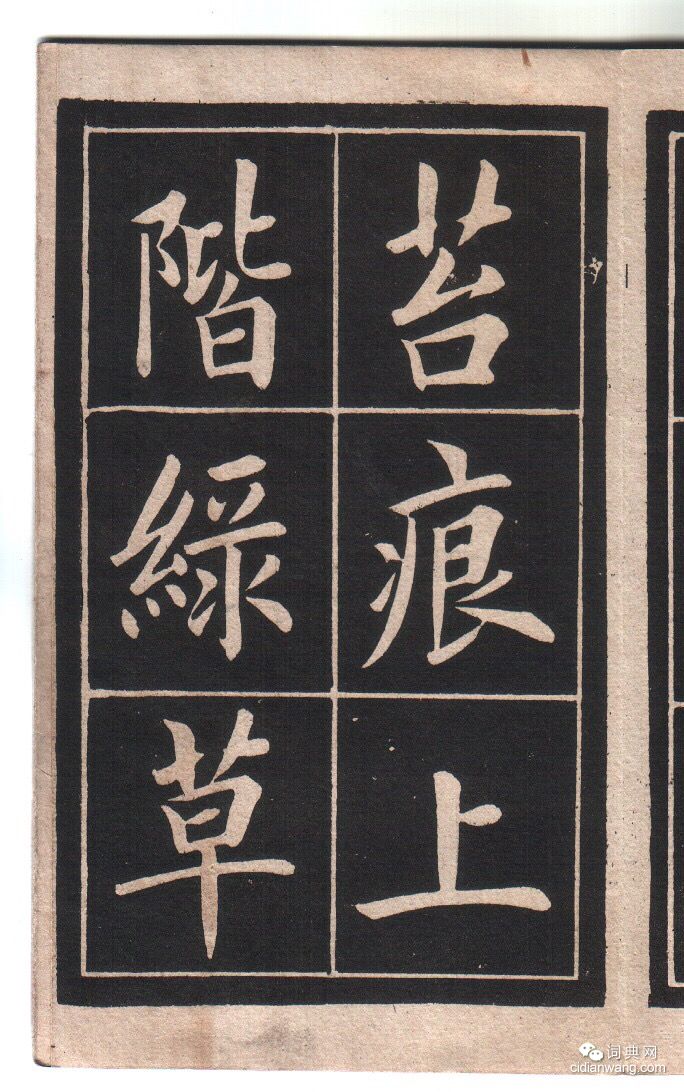 苔痕上
階綠草
词典网
cidianwang.com